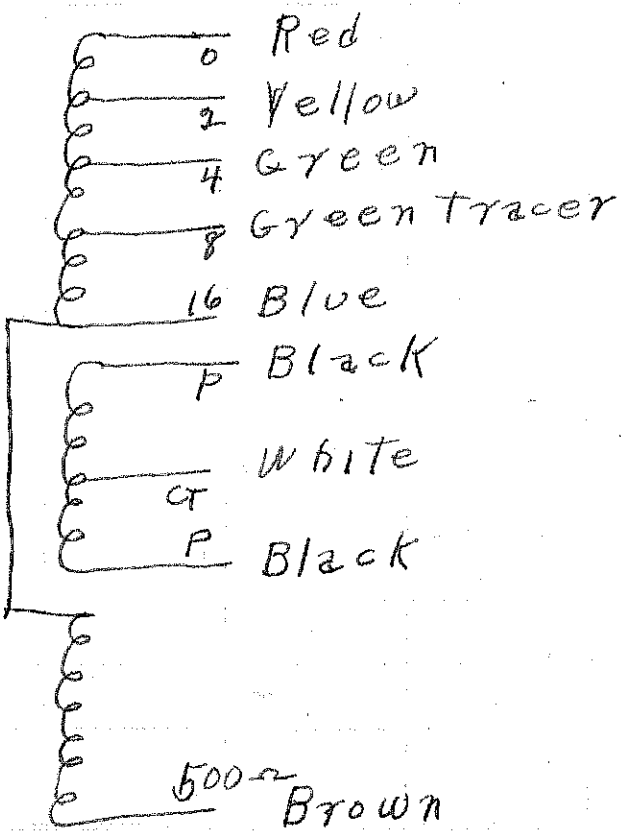 0 Red
2 Yellow
4 Green
8 Green Tracer
16 Blue
P Black
CT White
P Black
500Ω Brown